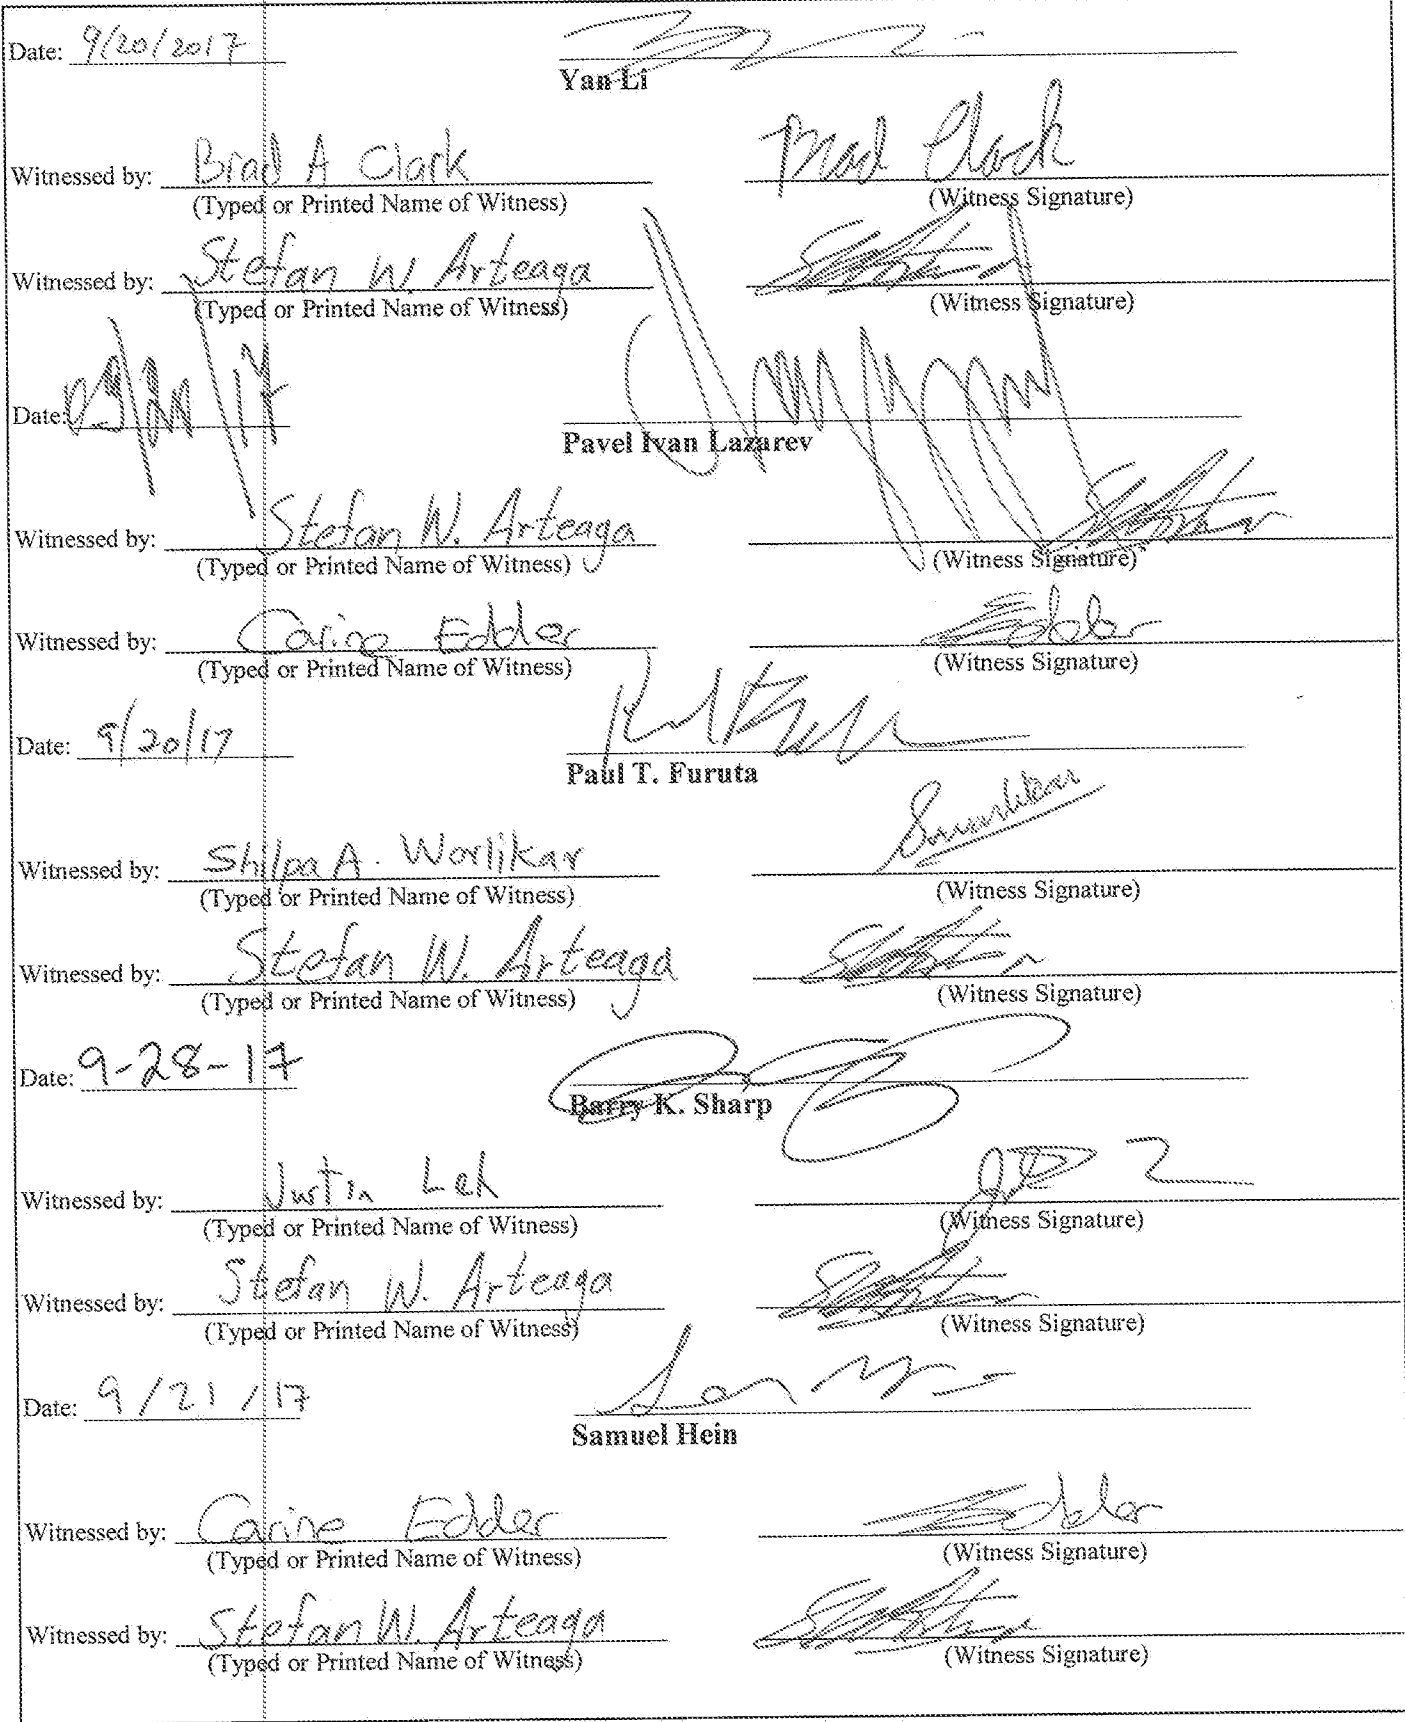 Date: 9/20/2017
Yan Li
Witnessed by: Brad A Clark Brad Clark
(Typed or Printed Name of Witness) (Witness Signature)
Witnessed by: Stefan W. Arteaga
(Typed or Printed Name of Witness) (Witness Signature)
Date:
Pavel Ivan Lazarev
Witnessed by: Stefan W. Arteaga
(Typed or Printed Name of Witness) (Witness Signature)
Witnessed by: Carine Edder Edder
(Typed or Printed Name of Witness) (Witness Signature)
Date: 9/20/17
Paul T. Furuta
Witnessed by: Shilpa A. Worlikar
(Typed or Printed Name of Witness) (Witness Signature)
Witnessed by: Stefan W. Arteaga
(Typed or Printed Name of Witness) (Witness Signature)
Date: 9-28-17
Barry K. Sharp
Witnessed by: Justin Leh
(Typed or Printed Name of Witness) (Witness Signature)
Witnessed by: Stefan W. Arteaga
(Typed or Printed Name of Witness) (Witness Signature)
Date: 9/21/17
Samuel Hein
Witnessed by: Carine Edder Edder
(Typed or Printed Name of Witness) (Witness Signature)
Witnessed by: Stefan W. Arteaga
(Typed or Printed Name of Witness) (Witness Signature)